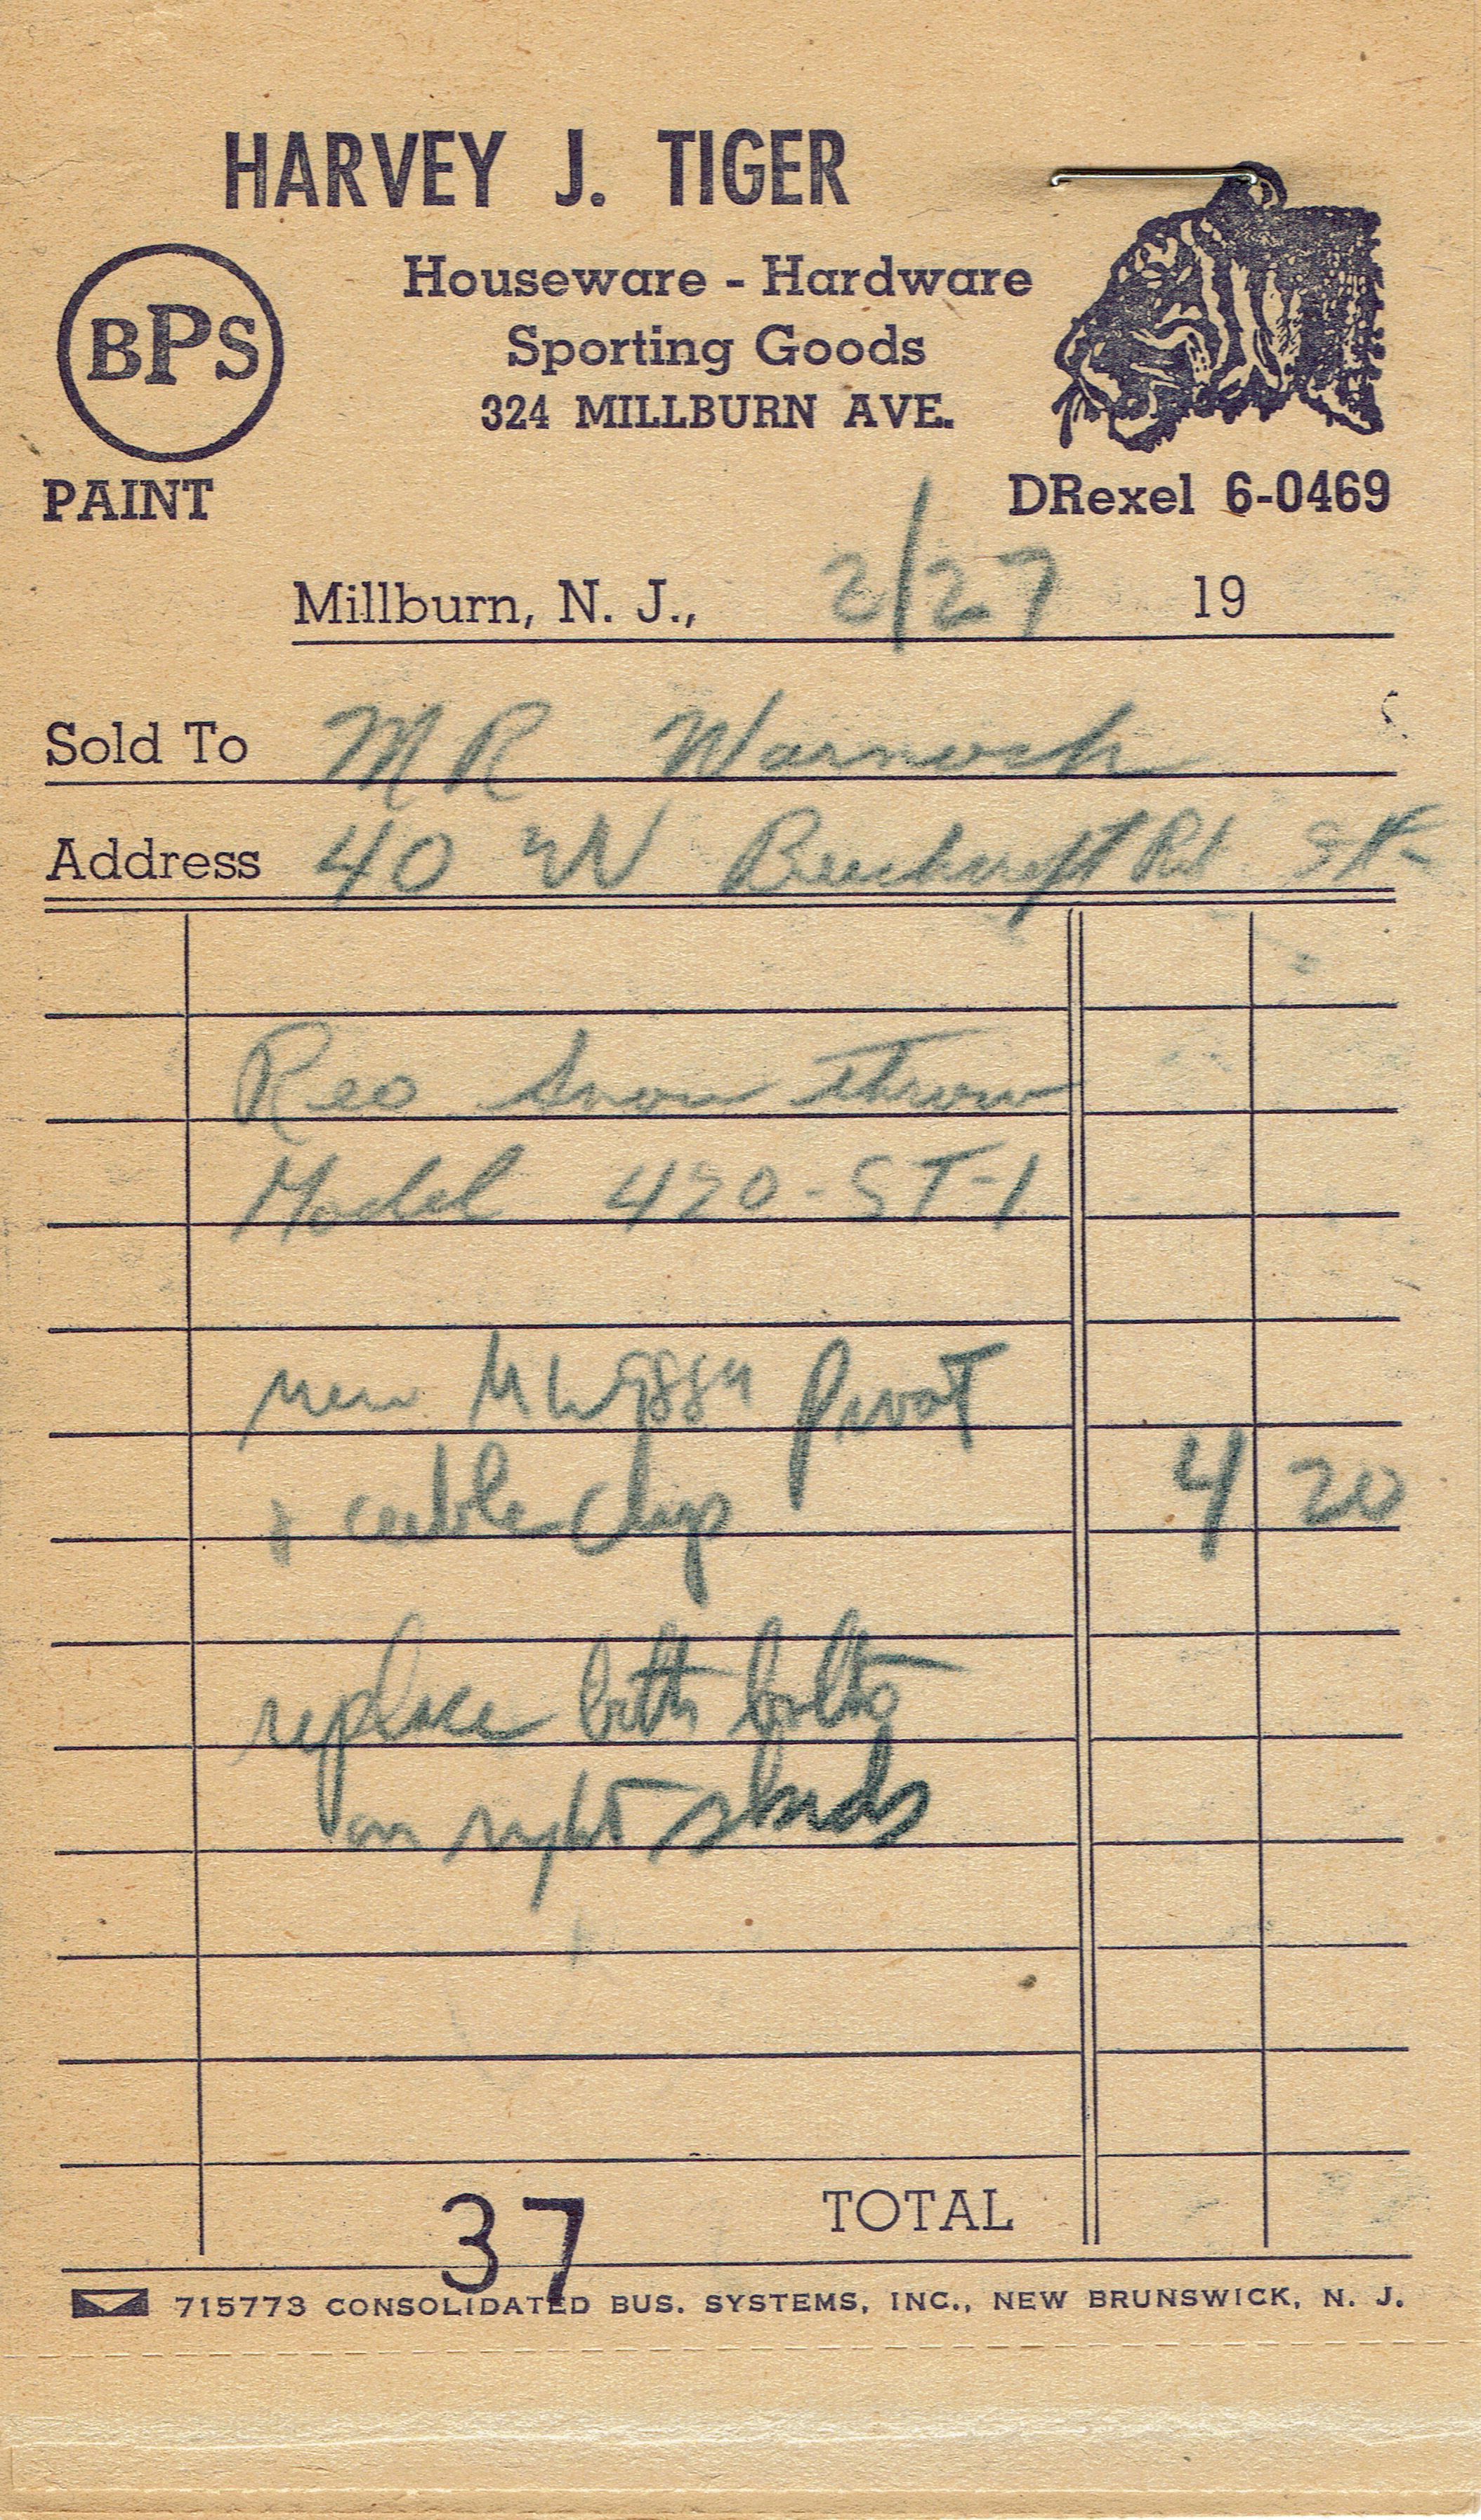 HARVEY J. TIGER
BPS
PAINT
Houseware - Hardware
Sporting Goods
324 MILLBURN AVE.
DRexel 6-0469
Millburn, N. J., 2/27 19
Sold To MR Warnock
Address 40 W Beechcroft Rd
Reo Snow Throw
Model 420-ST-1
new Pivot
& cable clip 4 20
replace both bolts
on right
37 TOTAL
715773 CONSOLIDATED BUS. SYSTEMS, INC., NEW BRUNSWICK, N. J.